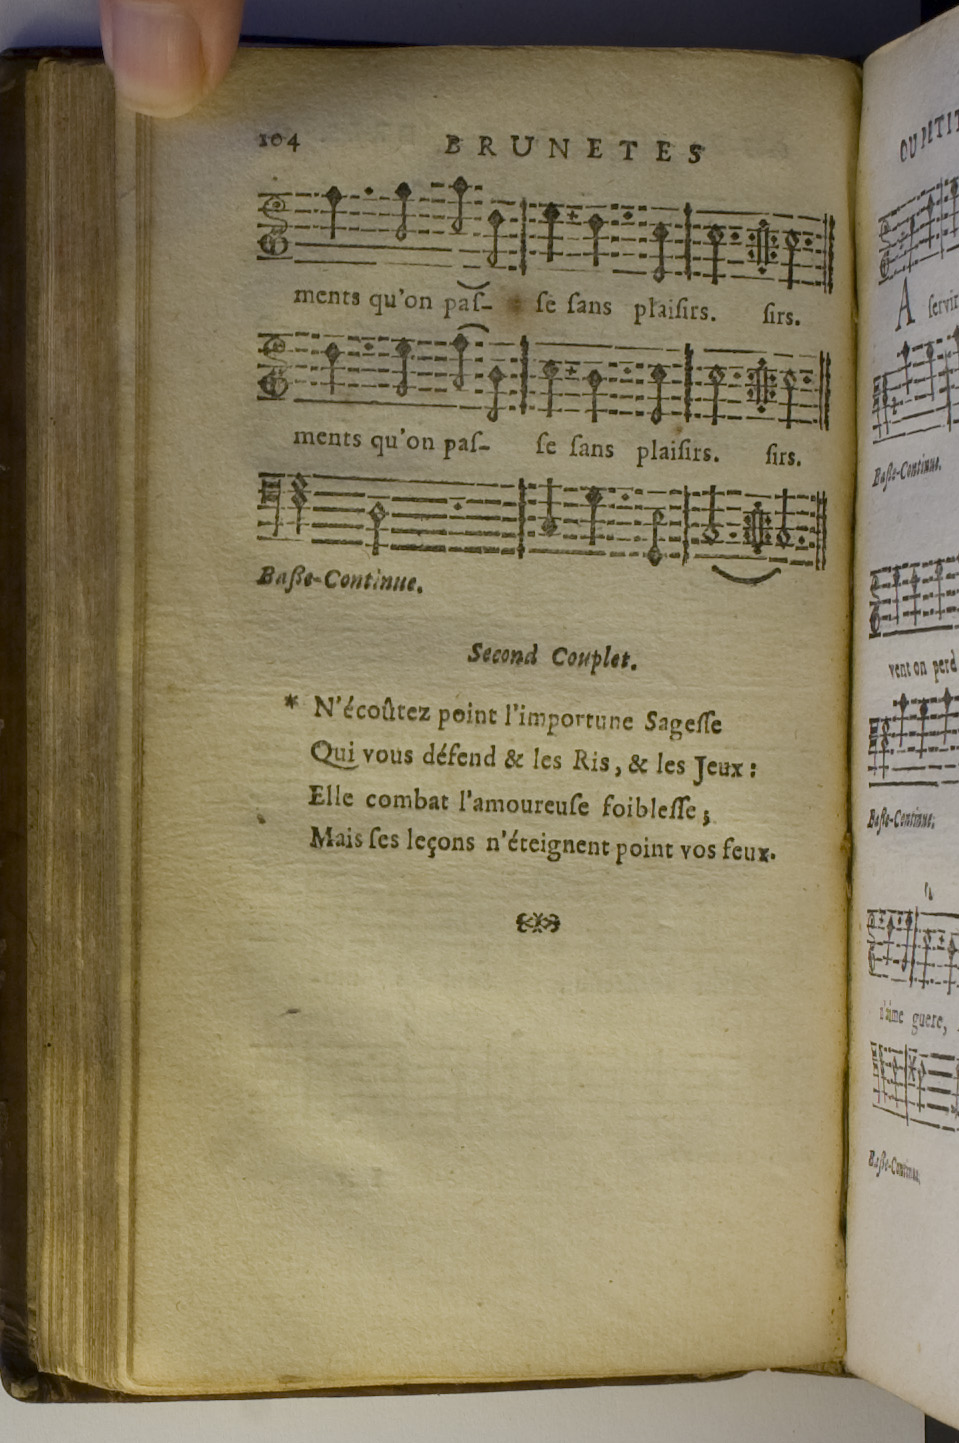 104 BRUNETES
ments qu'on paſ- ſe ſans plaiſirs. ſirs.
ments qu'on paſ- ſe ſans plaiſirs. ſirs.
Baſſe-Continue.
Second Couplet.
* N'écoûtez point l'importune Sageſſe
Qui vous défend & les Ris, & les Jeux:
Elle combat l'amoureuſe foibleſſe;
Mais ſes leçons n'éteignent point vos feux.
OU PETIT
A ſervir
Baſſe-Continue.
vent on perd
Baſſe-Continue.
n'aime guere,
Baſſe-Continue.